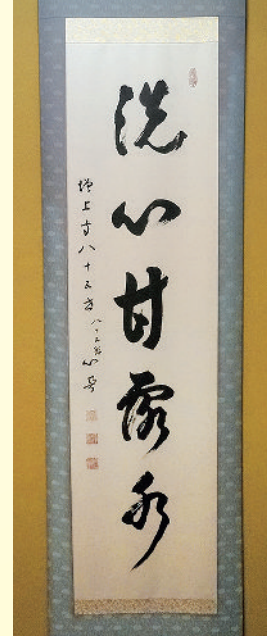 洗心甘露水
増上寺八十五世